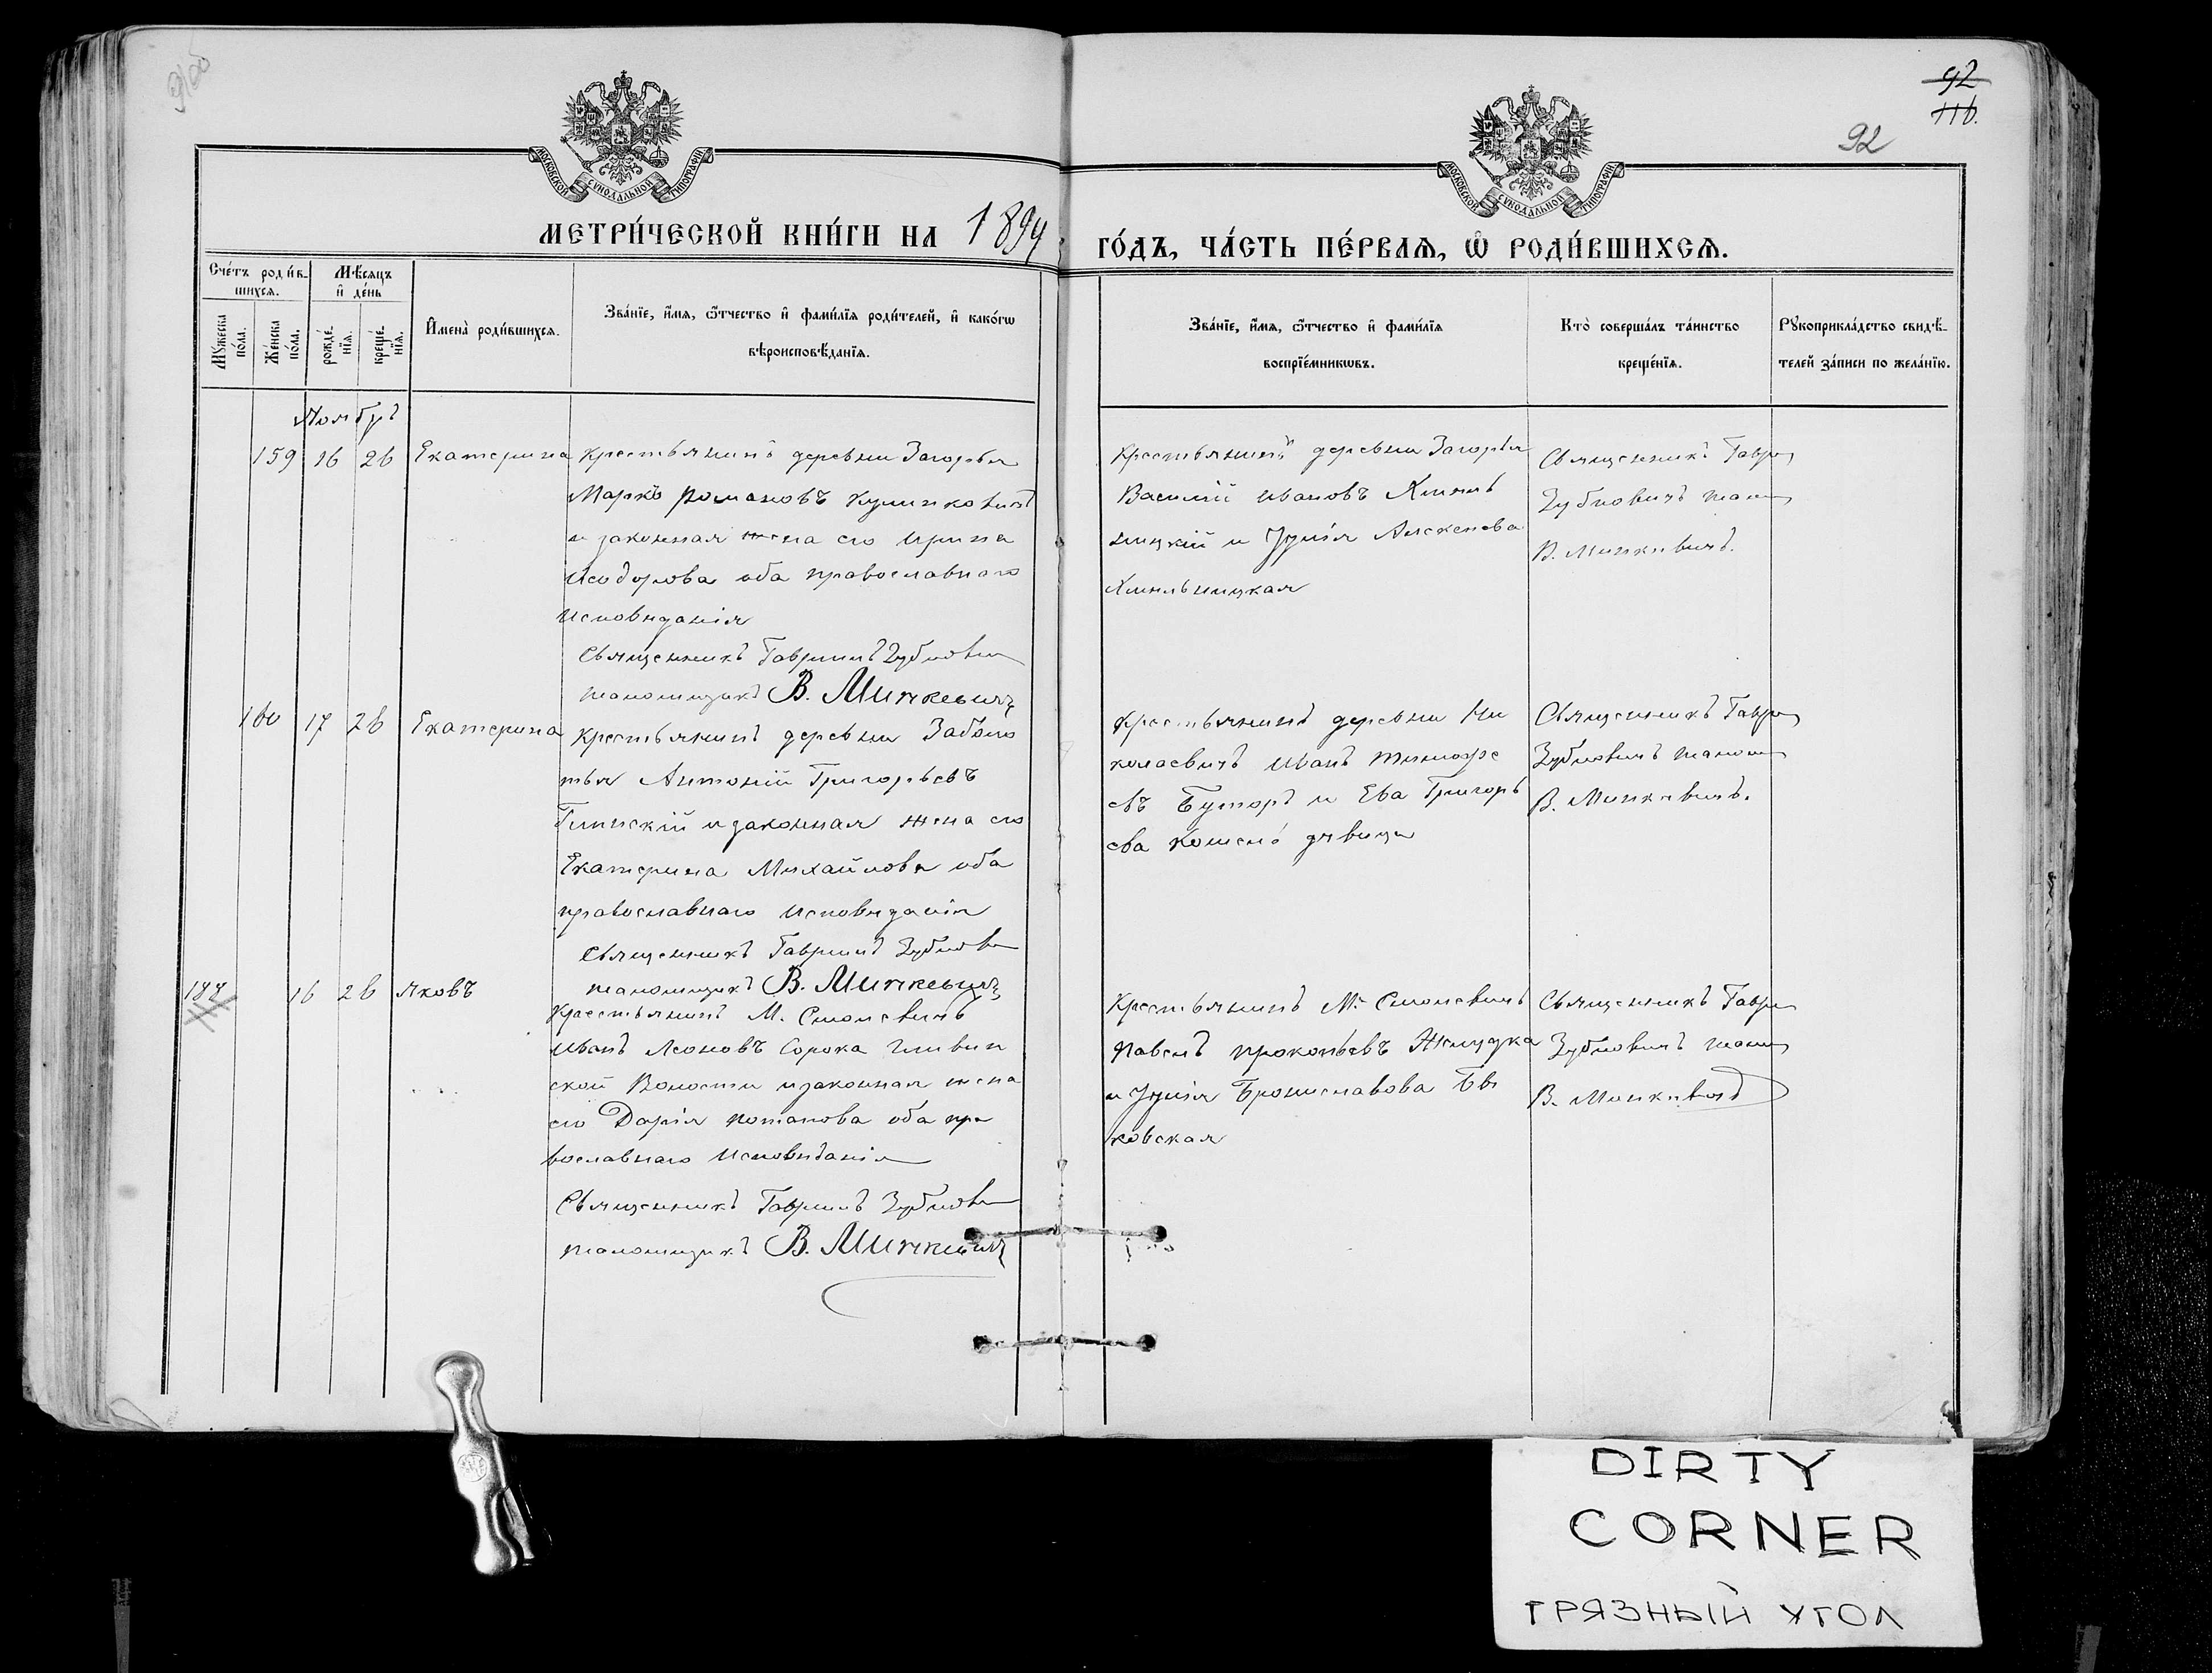 92
116.
92
МОСКОВСКОЙ СѴНОДАЛЬНОЙ ТИПОГРАФІИ
МОСКОВСКОЙ СѴНОДАЛЬНОЙ ТИПОГРАФІИ
МЕТРИ́ЧЕСКОЙ КНИ́ГИ НА 1894 ГО́ДЪ, ЧА́СТЬ ПЕ́РВАЯ, Ѡ҆ РОДИ́ВШИХСЯ.
Сче́тъ роди́в-
шихся.
Мѣ́сяцъ
и҆ де́нь
Мꙋ́жеска
по́ла.
Же́нска
по́ла.
рожде́-
нїя.
креще́-
нїя.
И҆мена̀ роди́вшихся.
Зва́нїе, и҆́мя, ѻ҆́тчество и҆ фами́лїя роди́телей, и҆ како́гѡ
вѣроисповѣ́данїя.
Зва́нїе, и҆́мя, ѻ҆́тчество и҆ фами́лїя
воспрїе́мникѡвъ.
Кто̀ соверша́лъ та́инство
креще́нїя.
Рꙋкоприкла́дство свидѣ́-
телей за́писи по жела́нїю.
Ноябрь
159 16 26 Екатерина
Крестьянинъ деревни Загорья
Марко Романовъ Куликовичъ
и законная жена его Ирина
Исидорова оба православнаго
исповѣданія
Священникъ Гавріилъ Зубкови
псаломщикъ В. Минкевичъ
Крестьянинъ деревни Загорья
Василій Ивановъ Хмель
ницкій и Юлія Алексеева
Хмельницкая
Священникъ Гаврі
Зубковичъ псалом
В. Минкевичъ.
160 17 26 Екатерина
Крестьянинъ деревни Заболо
тья Антоній Григорьевъ
и законная жена его
Екатерина Михайлова оба
православнаго исповѣданія
Священникъ Гавріилъ Зубкови
псаломщикъ В. Минкевичъ
Крестьянинъ деревни Ни
колаевичъ Иванъ Тимофе
евъ Буторъ и Ева Григорь
ева дѣвица
Священникъ Гаврі
Зубковичъ псалом
В. Минкевичъ.
16 26 Яковъ
Крестьянинъ М. Смолевичъ
Иванъ Леоновъ Сорока
ской Волости и законная жена
его Дарія Потапова оба пра
вославнаго исповѣданія
Священникъ Гавріилъ Зубкови
псаломщикъ В. Минкевичъ
Крестьянинъ М. Смолевичъ
Павелъ Прокопьевъ Жмудка
и Юлія Брониславова Бы
ковская
Священникъ Гаврі
Зубковичъ псалом
В. Минкевичъ
DIRTY
CORNER
ГРЯЗНЫЙ УГОЛ